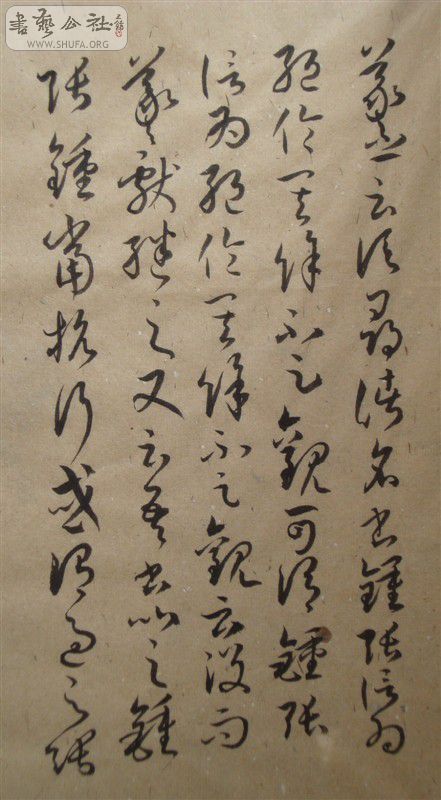 書藝公社
WWW.SHUFA.ORG
羲之云頃尋諸名書鍾張信為
絕倫其餘不足觀可謂鍾張
信為絕倫其餘不足觀云沒而
羲獻繼之又云吾書比之鍾
張鍾當抗行或謂過之張